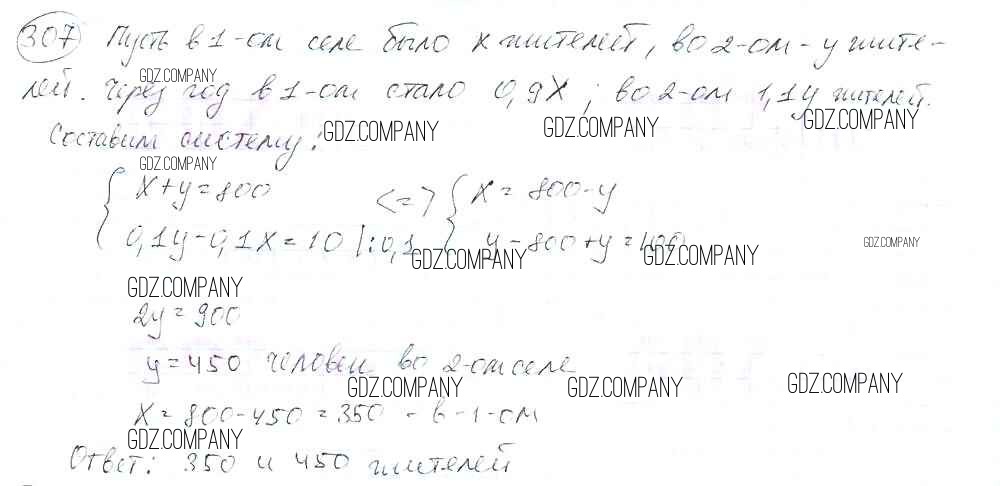 307 Пусть в 1-ом селе было x жителей, во 2-ом - y жите-
GDZ.COMPANY
лей. Через год в 1-ом стало 0,9x; во 2-ом 1,1y жителей.
GDZ.COMPANY GDZ.COMPANY GDZ.COMPANY
Составим систему:
GDZ.COMPANY
{ x+y=800 <=> { x = 800-y
0,1y-0,1x=10 |:0,1 y-800+y=100
GDZ.COMPANY GDZ.COMPANY GDZ.COMPANY
GDZ.COMPANY
2y=900
y=450 человек во 2-ом селе
GDZ.COMPANY GDZ.COMPANY GDZ.COMPANY
x=800-450=350 - в-1-ом
GDZ.COMPANY
Ответ: 350 и 450 жителей